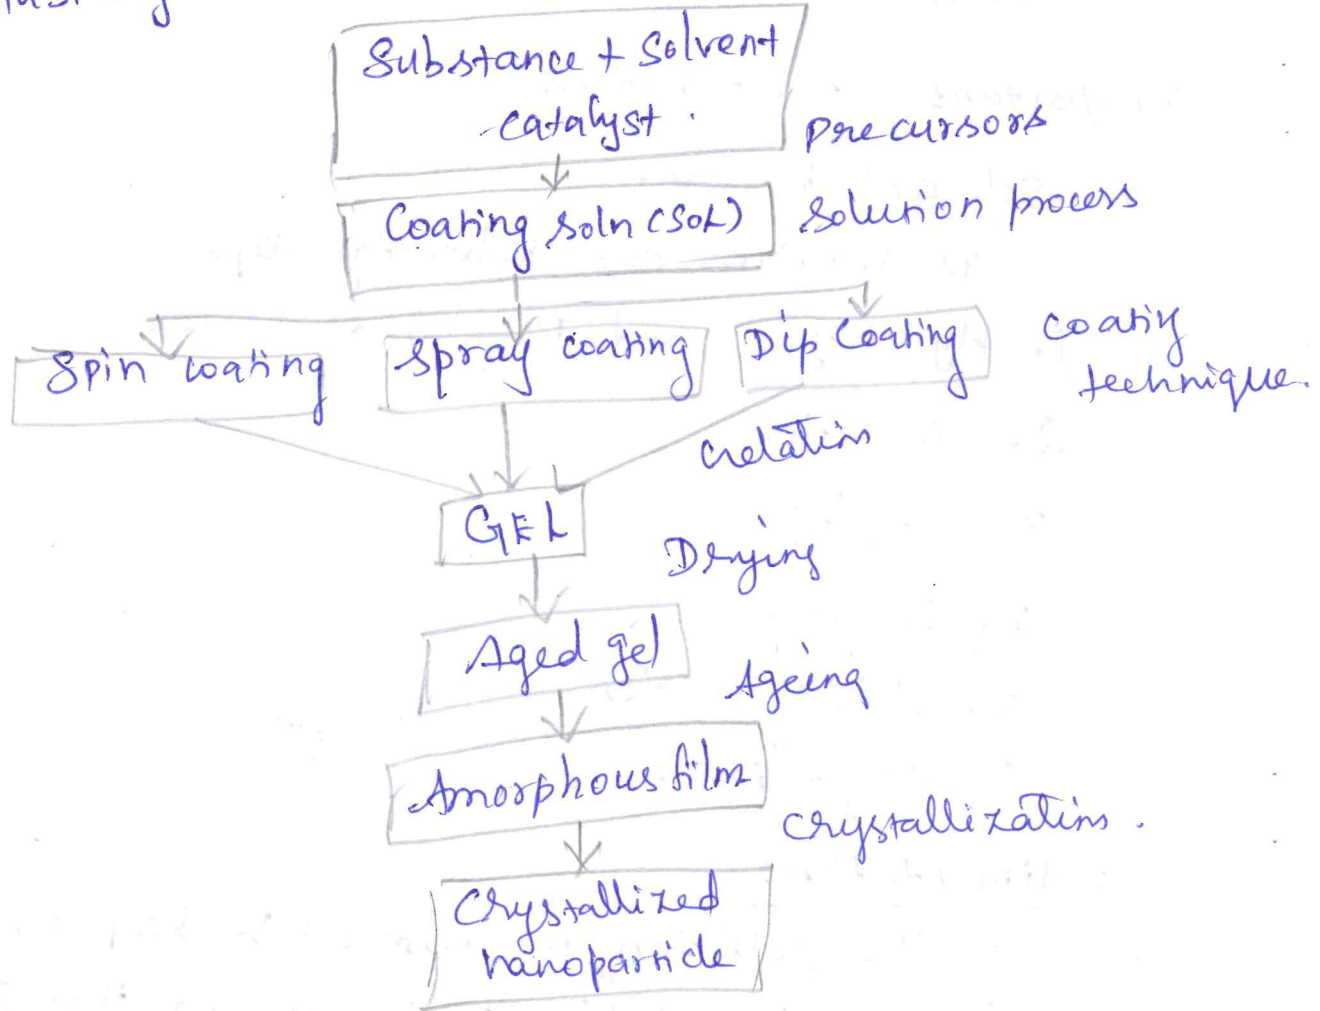 Substance + Solvent
catalyst.
Precursors
Coating soln (SOL)
Solution process
Spin coating
Spray coating
Dip Coating
Coating
technique.
Gelation
GEL
Drying
Aged gel
Ageing
Amorphous film
Crystallization.
Crystallized
nanoparticle